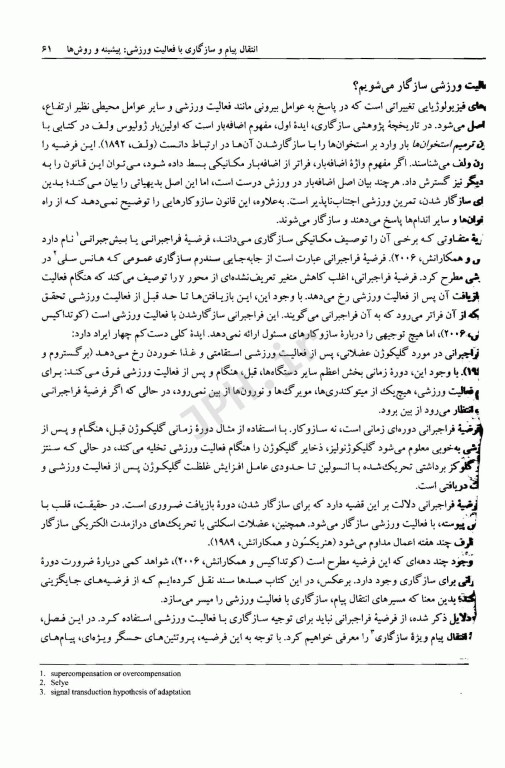 انتقال پیام و سازگاری با فعالیت ورزشی: پیشینه و روش‌ها ۶۱
مالیت ورزشی سازگار می‌شویم؟
های فیزیولوژیایی تغییراتی است که در پاسخ به عوامل بیرونی مانند فعالیت ورزشی و سایر عوامل محیطی نظیر ارتفاع،
اصل می‌شود. در تاریخچۀ پژوهشی سازگاری، ایدۀ اول، مفهوم اضافه‌بار است که اولین‌بار ژولیوس ولف در کتابی با
ن ترمیم استخوان‌ها بار وارد بر استخوان‌ها را با سازگارشدن آن‌ها در ارتباط دانست (ولف، ۱۸۹۲). این فرضیه را
ون ولف می‌شناسند. اگر مفهوم واژۀ اضافه‌بار، فراتر از اضافه‌بار مکانیکی بسط داده شود، می‌توان این قانون را به
دیگر نیز گسترش داد. هرچند بیان اصل اضافه‌بار در ورزش درست است، اما این اصل بدیهیاتی را بیان می‌کند؛ بدین
ای سازگار شدن، تمرین ورزشی اجتناب‌ناپذیر است. به‌علاوه، این قانون سازوکارهایی را توضیح نمی‌دهد که از راه
و سایر اندام‌ها پاسخ می‌دهند و سازگار می‌شوند.
یۀ متفاوتی که برخی آن را توصیف مکانیکی سازگاری می‌دانند، فرضیۀ فراجبرانی یا بیش‌جبرانی۱ نام دارد
س و همکارانش، ۲۰۰۶). فرضیۀ فراجبرانی عبارت است از جابه‌جایی سندرم سازگاری عمومی که هانس سلی۲ در
شی مطرح کرد. فرضیۀ فراجبرانی، اغلب کاهش متغیر تعریف‌نشده‌ای از محور y را توصیف می‌کند که هنگام فعالیت
بازیافت آن پس از فعالیت ورزشی رخ می‌دهد. با وجود این، این بازیافتن‌ها تا حد قبل از فعالیت ورزشی تحقق
بکه از آن فراتر می‌رود که به آن فراجبرانی می‌گویند. این فراجبرانی سازگارشدن با فعالیت ورزشی است (کوتداکیس
۲۰۰۶)، اما هیچ توجیهی را دربارۀ سازوکارهای مسئول ارائه نمی‌دهد. ایدۀ کلی دست‌کم چهار ایراد دارد:
راجبرانی در مورد گلیکوژن عضلانی، پس از فعالیت ورزشی استقامتی و غذا خوردن رخ می‌دهد (برگستروم و
با وجود این، دورۀ زمانی بخش اعظم سایر دستگاه‌ها، قبل، هنگام و پس از فعالیت ورزشی فرق می‌کند: برای
فعالیت ورزشی، هیچ‌یک از میتوکندری‌ها، مویرگ‌ها و نورون‌ها از بین نمی‌رود، در حالی که اگر فرضیۀ فراجبرانی
انتظار می‌رود از بین برود.
فرضیۀ فراجبرانی دوره‌ای زمانی است، نه سازوکار. با استفاده از مثال دورۀ زمانی گلیکوژن قبل، هنگام و پس از
شی به‌خوبی معلوم می‌شود گلیکوژنولیز، ذخایر گلیکوژن را هنگام فعالیت ورزشی تخلیه می‌کند، در حالی که سنتز
گلوکز برداشتی تحریک‌شده با انسولین تا حدودی عامل افزایش غلظت گلیکوژن پس از فعالیت ورزشی و
دریافتی است.
فرضیۀ فراجبرانی دلالت بر این قضیه دارد که برای سازگار شدن، دورۀ بازیافت ضروری است. در حقیقت، قلب با
پیوسته، با فعالیت ورزشی سازگار می‌شود. همچنین، عضلات اسکلتی با تحریک‌های درازمدت الکتریکی سازگار
ظرف چند هفته اعمال مداوم می‌شود (هنریکسون و همکارانش، ۱۹۸۹).
وجود چند دهه‌ای که این فرضیه مطرح است (کوتداکیس و همکارانش، ۲۰۰۶)، شواهد کمی دربارۀ ضرورت دورۀ
برای سازگاری وجود دارد. برعکس، در این کتاب صدها سند نقل کرده‌ایم که از فرضیه‌های جایگزینی
بدین معنا که مسیرهای انتقال پیام، سازگاری با فعالیت ورزشی را میسر می‌سازد.
دلایل ذکر شده، از فرضیۀ فراجبرانی نباید برای توجیه سازگاری با فعالیت ورزشی استفاده کرد. در این فصل،
انتقال پیام ویژۀ سازگاری۳ را معرفی خواهیم کرد. با توجه به این فرضیه، پروتئین‌های حسگر ویژه‌ای، پیام‌های
1. supercompensation or overcompensation
2. Selye
3. signal transduction hypothesis of adaptation